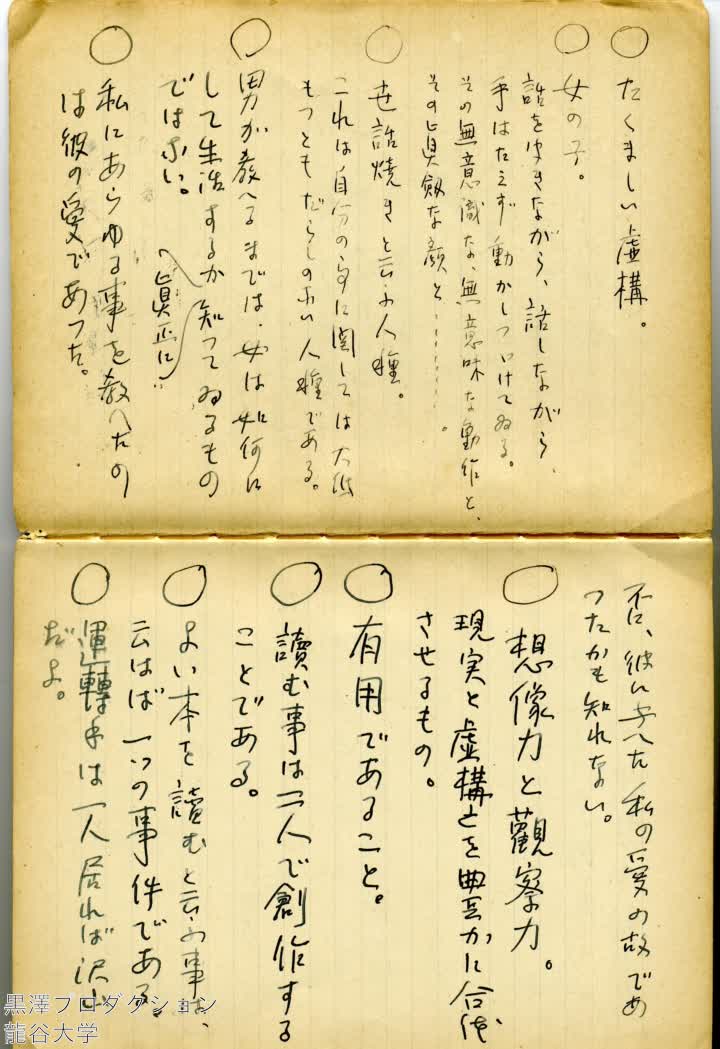 ○ たくましい虚構。
○ 女の子。
話をきながら、話しながら、
手はたえず動かしつゞけてゐる。
その無意識な、無意味な動作と、
その真剣な顔と………。
○ 世話焼きと云ふ人種。
これは自分の事に関しては大抵
もつともだらしのない人種である。
○ 男が教へるまでは、女は如何に
して生活するか知つてゐるもの
ではない。
真正に
○ 私にあらゆる事を教へたの
は彼の愛であつた。
否、彼に与へた私の愛の故であ
つたかも知れない。
○ 想像力と観察力。
現実と虚構とを豊かに合体
させるもの。
○ 有用であること。
○ 讀む事は二人で創作する
ことである。
○ よい本を讀むと云ふ事は、
云はば一つの事件である。
○ 運轉手は一人居れば沢山
だよ。
黒澤プロダクション
龍谷大学